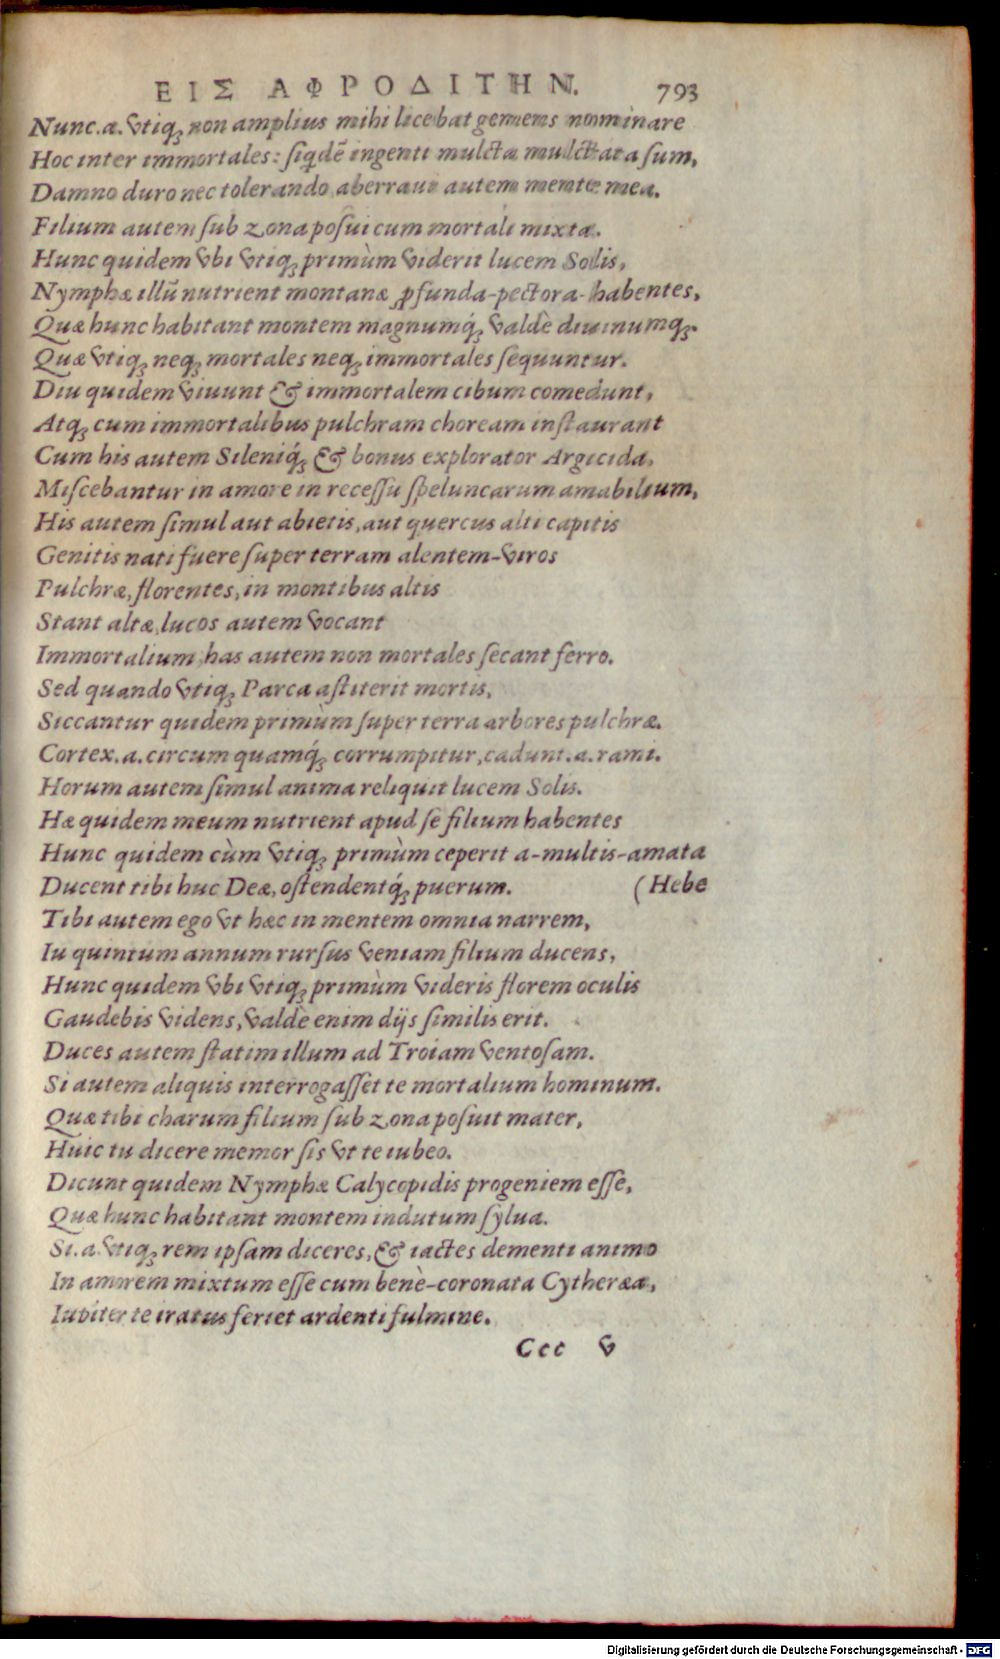 ΕΙΣ ΑΦΡΟΔΙΤΗΝ. 793
Nunc.a.vtiq; non amplius mihi licebat gemens nominare
Hoc inter immortales: siqdē ingenti mulcta mulctata sum,
Damno duro nec tolerando, aberraui autem mente mea.
Filium autem sub zona posui cum mortali mixta.
Hunc quidem vbi vtiq; primùm viderit lucem Solis,
Nymphæ illū nutrient montanæ ꝓfunda-pectora-habentes,
Quæ hunc habitant montem magnumq́; valdè diuinumq;.
Quæ vtiq; neq; mortales neq; immortales sequuntur.
Diu quidem viuunt & immortalem cibum comedunt,
Atq; cum immortalibus pulchram choream instaurant
Cum his autem Sileniq́; & bonus explorator Argicida,
Miscebantur in amore in recessu speluncarum amabilium,
His autem simul aut abietis, aut quercus alti capitis
Genitis nati fuere super terram alentem-viros
Pulchræ, florentes, in montibus altis
Stant altæ, lucos autem vocant
Immortalium, has autem non mortales secant ferro.
Sed quando vtiq; Parca astiterit mortis,
Siccantur quidem primùm super terra arbores pulchræ.
Cortex.a.circum quamq́; corrumpitur, cadunt.a.rami.
Horum autem simul anima reliquit lucem Solis.
Hæ quidem meum nutrient apud se filium habentes
Hunc quidem cùm vtiq; primùm ceperit a-multis-amata
Ducent tibi huc Deæ, ostendentq́; puerum. (Hebe
Tibi autem ego vt hæc in mentem omnia narrem,
Iu quintum annum rursus veniam filium ducens,
Hunc quidem vbi vtiq; primùm videris florem oculis
Gaudebis videns, valdè enim dijs similis erit.
Duces autem statim illum ad Troiam ventosam.
Si autem aliquis interrogasset te mortalium hominum.
Quæ tibi charum filium sub zona posuit mater,
Huic tu dicere memor sis vt te iubeo.
Dicunt quidem Nymphæ Calycopidis progeniem esse,
Quæ hunc habitant montem indutum sylua.
Si.a.vtiq; rem ipsam diceres, & iactes dementi animo
In amorem mixtum esse cum benè-coronata Cytheræa,
Iupiter te iratus feriet ardenti fulmine.
Ccc v
Digitalisierung gefördert durch die Deutsche Forschungsgemeinschaft - DFG